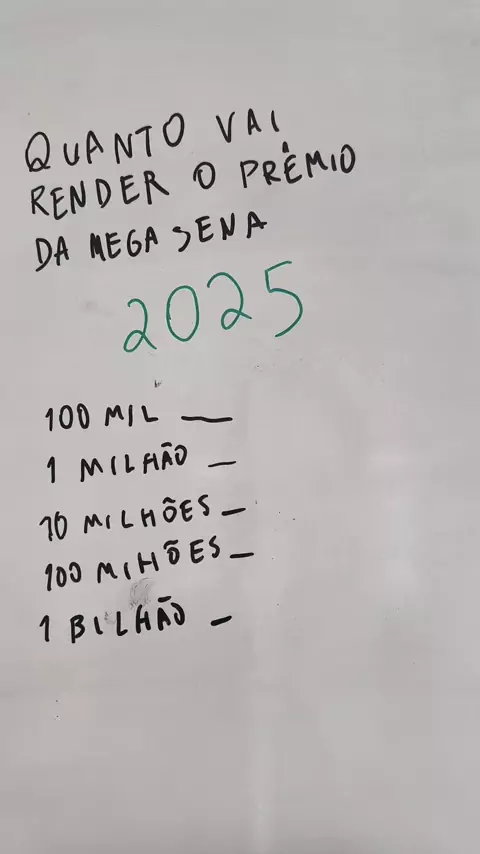 QUANTO VAI
RENDER O PRÊMIO
DA MEGA SENA
2025
100 MIL —
1 MILHÃO —
10 MILHÕES —
100 MIHÕES —
1 BILHÃO —